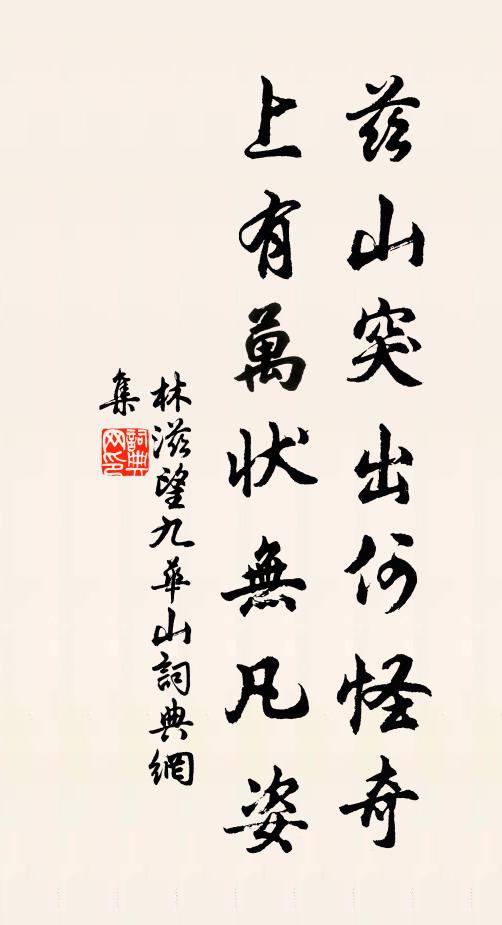 茲山突出何怪奇
上有萬狀無凡姿
林滋望九華山詞典網
集
詞典网印